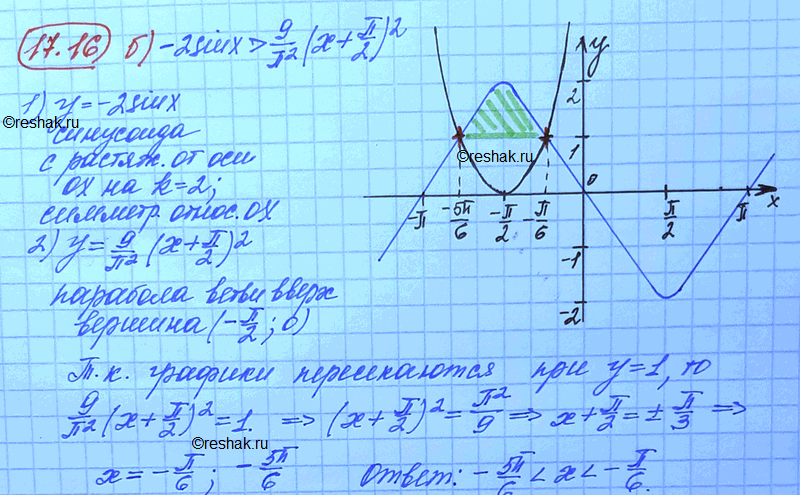 17.16 б) -2sinx > 9/π² (x + π/2)²
1) y = -2sinx
©reshak.ru
синусоида
с растяж. от оси
OX на k=2;
симметр. относ. OX
2) y = 9/π² (x + π/2)²
парабола ветви вверх
вершина (-π/2; 0)
y
2
1
©reshak.ru
0
-π -5π/6 -π/2 -π/6 π/2 π x
-1
-2
Т.к. графики пересекаются при y=1, то
9/π² (x + π/2)² = 1. => (x + π/2)² = π²/9 => x + π/2 = ± π/3 =>
©reshak.ru
x = -π/6; -5π/6 Ответ: -5π/6 < x < -π/6.